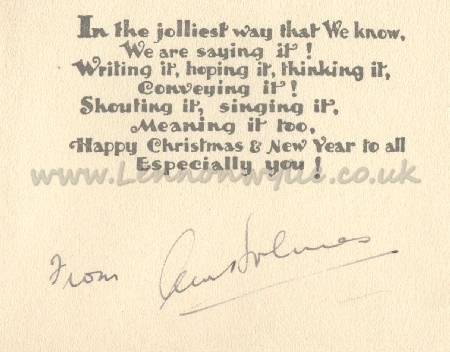 In the jolliest way that We know,
We are saying it!
Writing it, hoping it, thinking it,
Conveying it!
Shouting it, singing it,
Meaning it too,
Happy Christmas & New Year to all
Especially you!
From